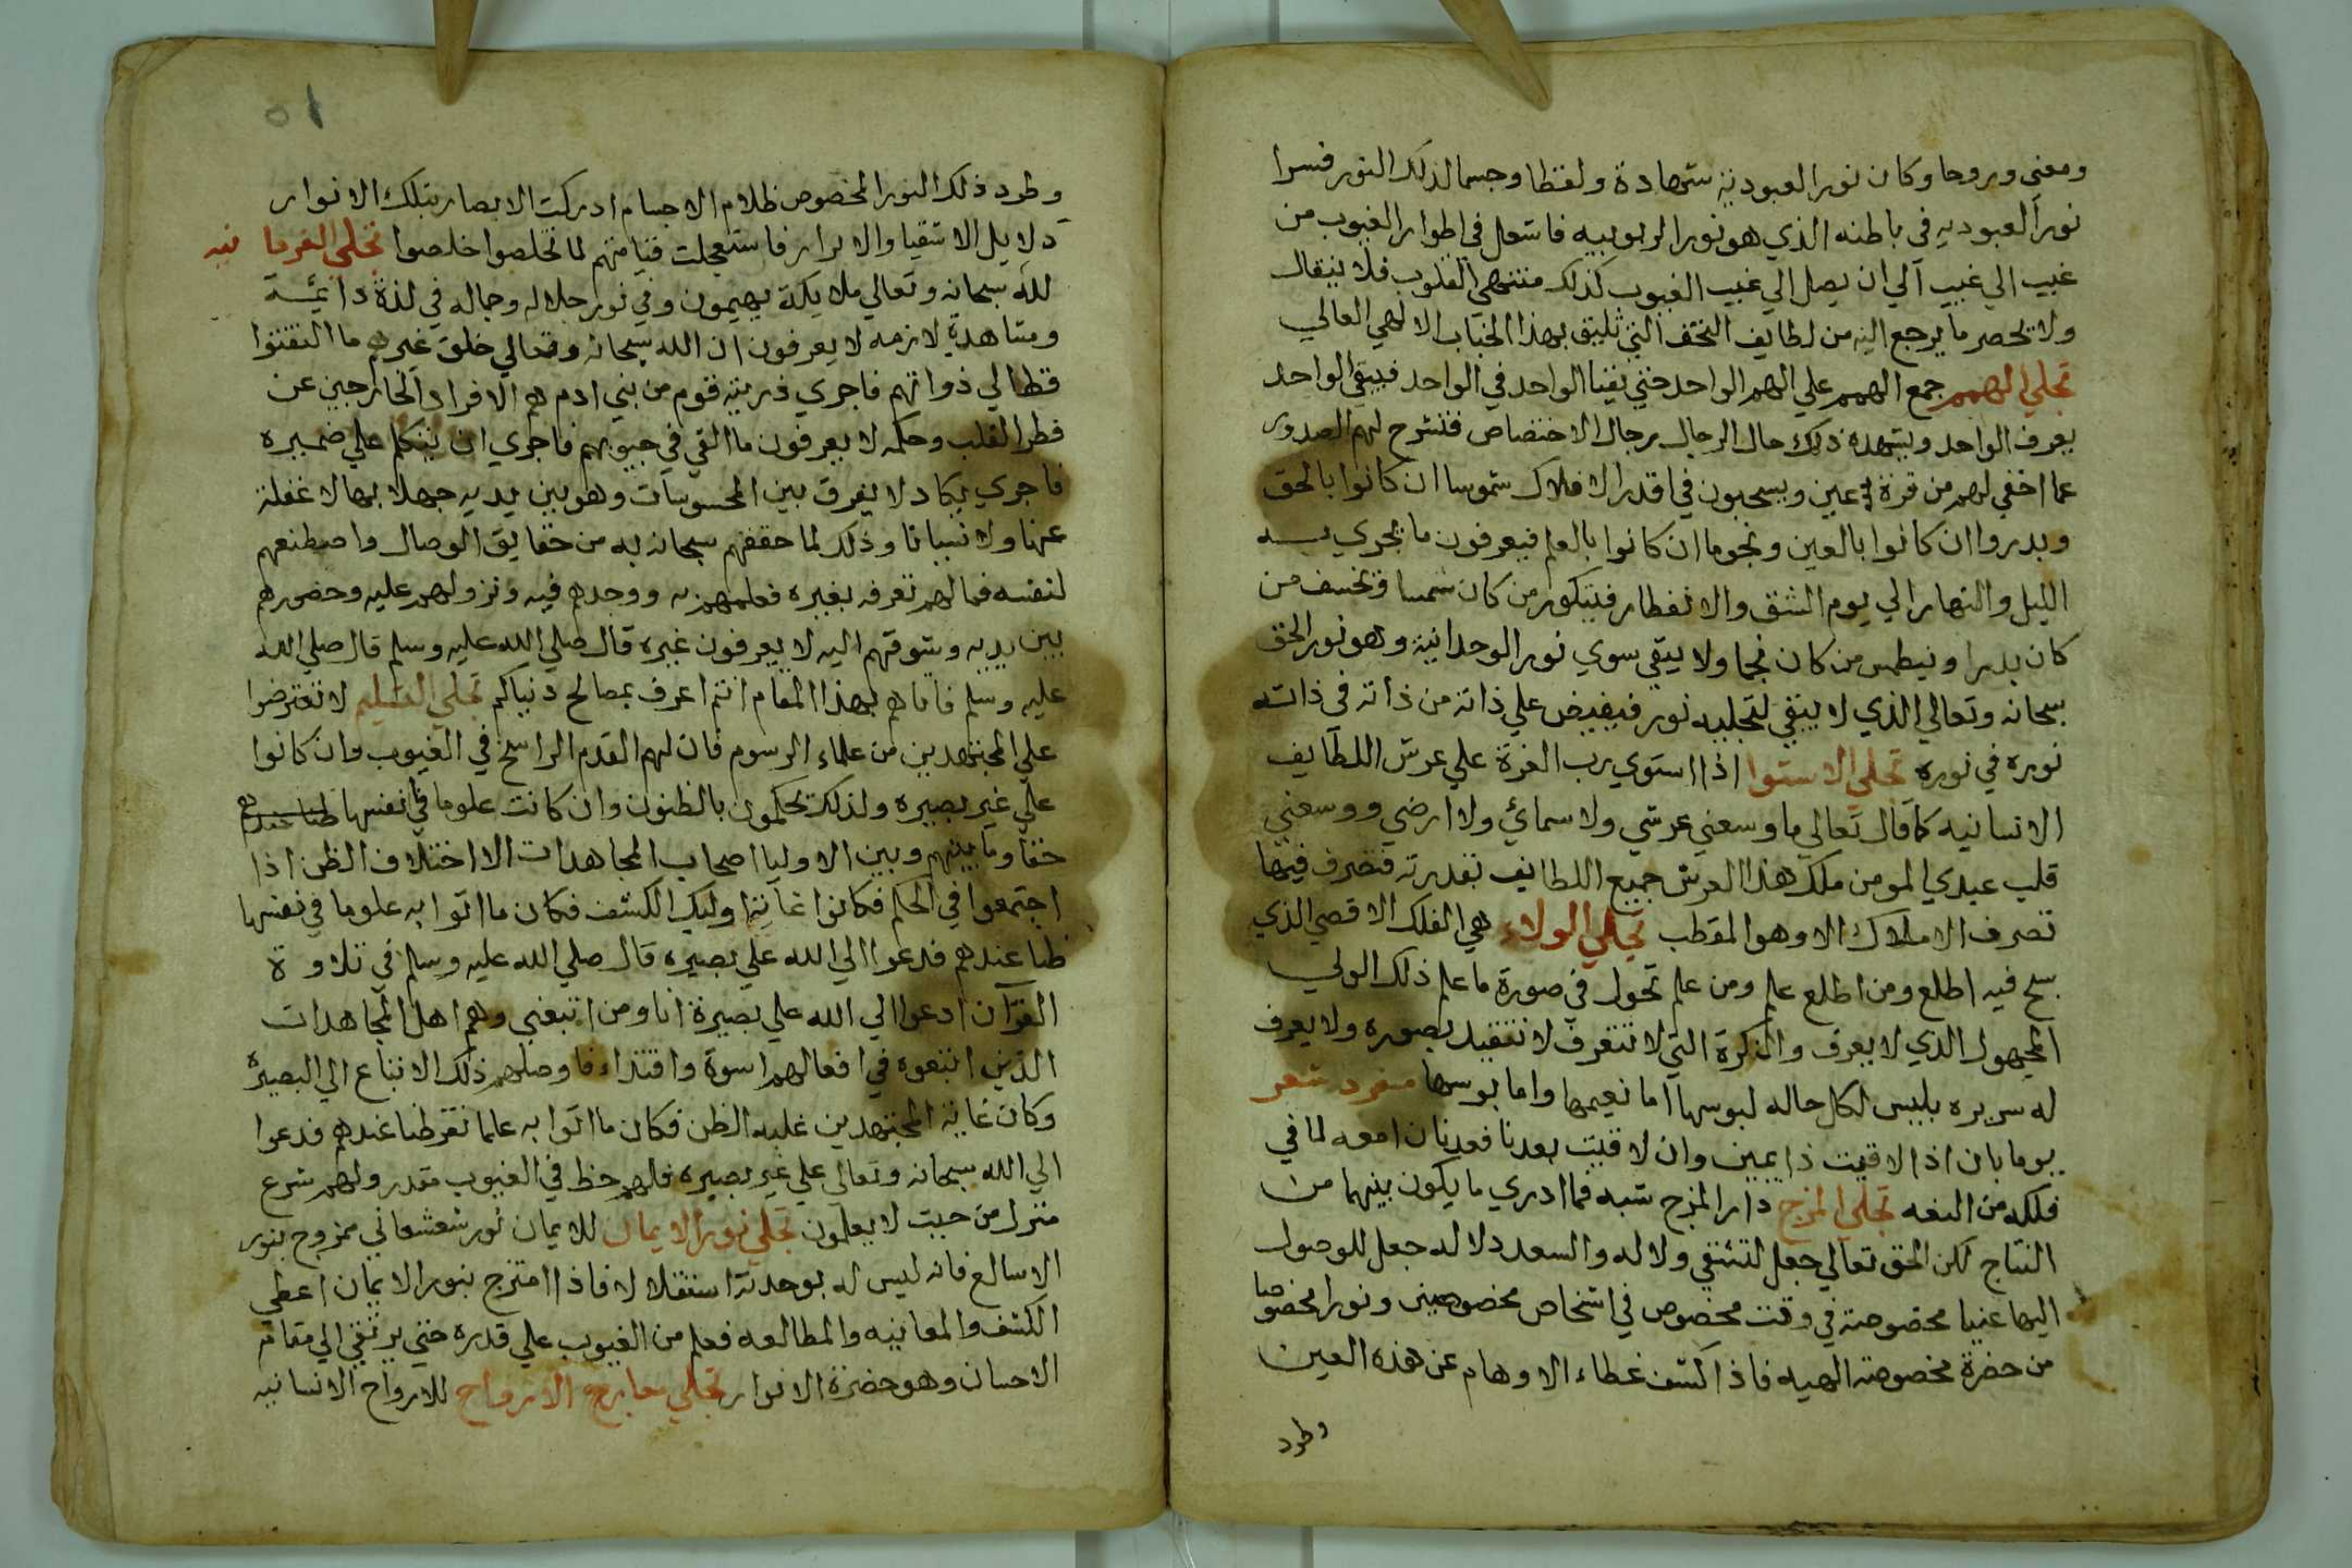 ومعني وروحا وكان نور العبودية شهادة ولفظا وجسما لذلك النور فسرا
نور العبوديه في باطنه الذي هو نور الربوبيه فاشعل في اطوار الغيوب من
غيب الي غيب الي ان يصل الي غيب الغيوب كذلك منتهي القلوب فلا ينقال
ولا تحصر ما يرجع اليه من لطايف التحف التي تليق بهذا الجناب الالهي العالي
تجلي الهمم جمع الهمم علي الهم الواحد حتي يفنا الواحد في الواحد فيبقي الواحد
يعرف الواحد ويشهده ذلك حال الرجال رجال الاختصاص فتشرح لهم الصدور
عما اخفي لهم من قرة عين ويسبحون في اقدر الافلاك شموسا ان كانوا بالحق
وبدروا ان كانوا بالعين ونجوما ان كانوا بالعلم فيعرفون ما يجري به
الليل والنهار الي يوم الشق والانفطار فيتكور من كان شمسا وتخسف من
كان بدرا ونيطمس من كان نجما ولا يبقي سوي نور الوحدانية وهو نور الحق
سبحانه وتعالي الذي لا يبقي لتجليه نور فيفيض علي ذاته من ذاته في ذاته
نوره في نوره تجلي الاستوا اذا استوي رب العزة علي عرش اللطايف
الانسانيه كما قال تعالي ما وسعني عرشي ولا سمائي ولا ارضي ووسعني
قلب عبدي المومن ملك هذا العرش جميع اللطايف بقدرته فتصرف فيها
تصرف الاملاك الا وهو القطب تجلي الولاء هي الفلك الاقصي الذي
سبح فيه اطلع ومن اطلع علم ومن علم تحول في صورة ما علم ذلك الولي
المجهول الذي لا يعرف والنكرة التي لا تتعرف لا تتقيد بصوره ولا يعرف
له سريره يلبس لكل حاله لبوسها اما نعيمها واما بوسها مفرد شعر
يوما يان اذا لاقيت ذا يمين وان لاقيت بعدنا فعدنان امعه لما في
فلكه من السعه تجلي المزج دار المزج شبه فما ادري ما يكون بينهما من
النتاج لكن الحق تعالي جعل لتشتفي ولاله والسعد دلاله جعل للوصول
اليها عنيا مخصوصة في وقت مخصوص في اشخاص مخصوصين ونورا مخصوصا
من حضرة مخصوصة الهيه فاذا كشف غطاء الاوهام عن هذه العين
وطرد
٥١
وطرد ذلك النور المخصوص ظلام الاجسام ادركت الابصار بتلك الانوار
دلايل الاشقيا والابرار فاستعجلت قيامتهم لما تخلصوا خلصوا تجلي الفرمانيه
لله سبحانه وتعالي ملايكة يهيمون وفي نور جلاله وجماله في لذة دايمة
ومشاهدة لازمه لا يعرفون ان الله سبحانه وتعالي خلق غيرهم ما التفتوا
قط الي ذواتهم فاجري ذريته قوم من بني ادم هم الافراد الخارجين عن
فطر القلب وحكمه لا يعرفون ما القي في جيوبهم فاجري ان يتكلم علي ضميره
فاجري يكاد لا يفرق بين المحسوسات وهو بين يديه جهلا بها لا غفلة
عنها ولا نسيانا وذلك لما حققهم سبحانه به من حقايق الوصال واصطنعهم
لنفسه فما لهم تعرفه بغيره فعلمهم به ووجدهم فيه ونزولهم عليه وحضورهم
بين يديه وشوقهم اليه لا يعرفون غيره قال صلي الله عليه وسلم قال صلي الله
عليه وسلم فاتاهم بهذا المقام انتم اعرف بمصالح دنياكم تجلي التسليم لا تعترضوا
علي المجتهدين من علماء الرسوم فان لهم القدم الراسخ في الغيوب وان كانوا
علي غير بصيره ولذلك تحكمون بالظنون وان كانت علوما في انفسها ظنا عندهم
حقا وما بينهم وبين الاوليا اصحاب المجاهدات الا اختلاف الظن اذا
اجتمعوا في الحكم فكانوا غاية اوليك الكشف فكان ما اتوا به علوما في نفسها
ظنا عندهم فدعوا الي الله علي بصيره قال صلي الله عليه وسلم في تلاوة
القرآن ادعوا الي الله علي بصيرة انا ومن اتبعني وهم اهل المجاهدات
الذين اتبعوه في افعالهم اسوة واقتداء فاوصلهم ذلك الاتباع الي البصيرة
وكان غاية المجتهدين غلبه الظن فكان ما اتوا به علما نقر ظنا عندهم فدعوا
الي الله سبحانه وتعالي علي غير بصيره فلهم حظ في الغيوب مقدر ولهم شرع
منزل من حيث لا يعلمون تجلي نور الايمان للايمان نور شعشعاني ممزوج بنور
الاسالع فانه ليس له بوحدته استقلالا فاذا امتزج بنور الايمان اعطي
الكشف والمعاينه والمطالعه فعلم من الغيوب علي قدره حتي يرتقي الي مقام
الاحسان وهو حضرة الانوار تجلي معارج الارواح للارواح الانسانيه